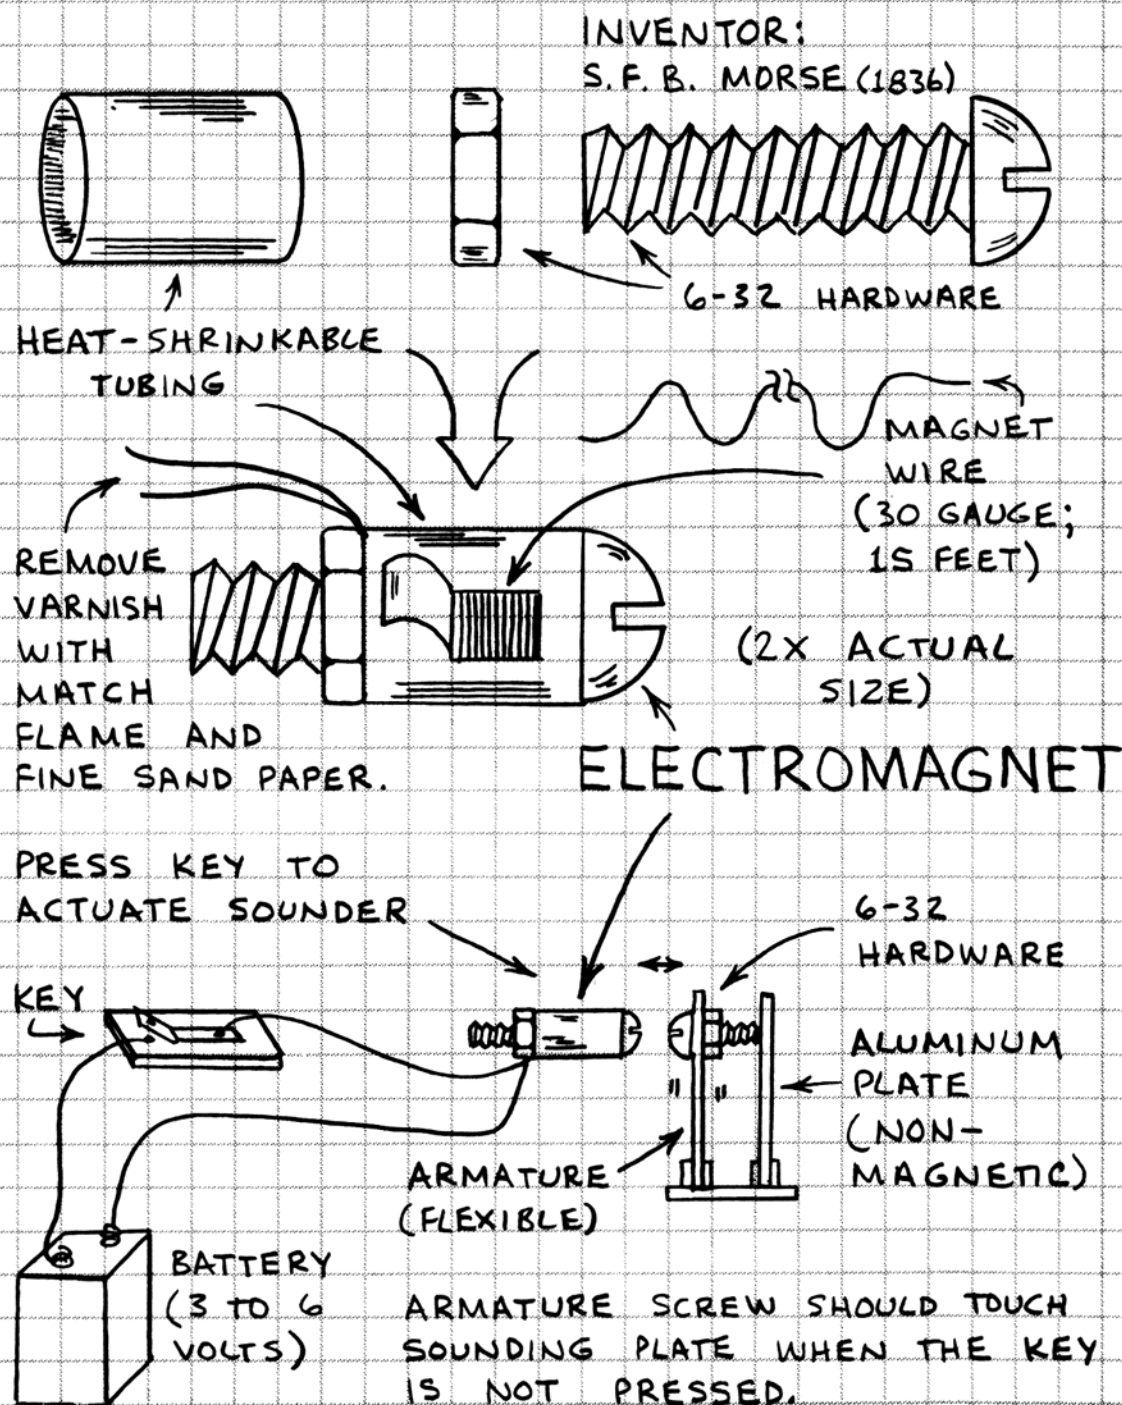 INVENTOR:
S.F.B. MORSE (1836)
6-32 HARDWARE
HEAT-SHRINKABLE
TUBING
MAGNET
WIRE
(30 GAUGE;
15 FEET)
REMOVE
VARNISH
WITH
MATCH
FLAME AND
FINE SAND PAPER.
(2X ACTUAL
SIZE)
ELECTROMAGNET
PRESS KEY TO
ACTUATE SOUNDER
6-32
HARDWARE
KEY
ALUMINUM
PLATE
(NON-
MAGNETIC)
ARMATURE
(FLEXIBLE)
BATTERY
(3 TO 6
VOLTS)
ARMATURE SCREW SHOULD TOUCH
SOUNDING PLATE WHEN THE KEY
IS NOT PRESSED.